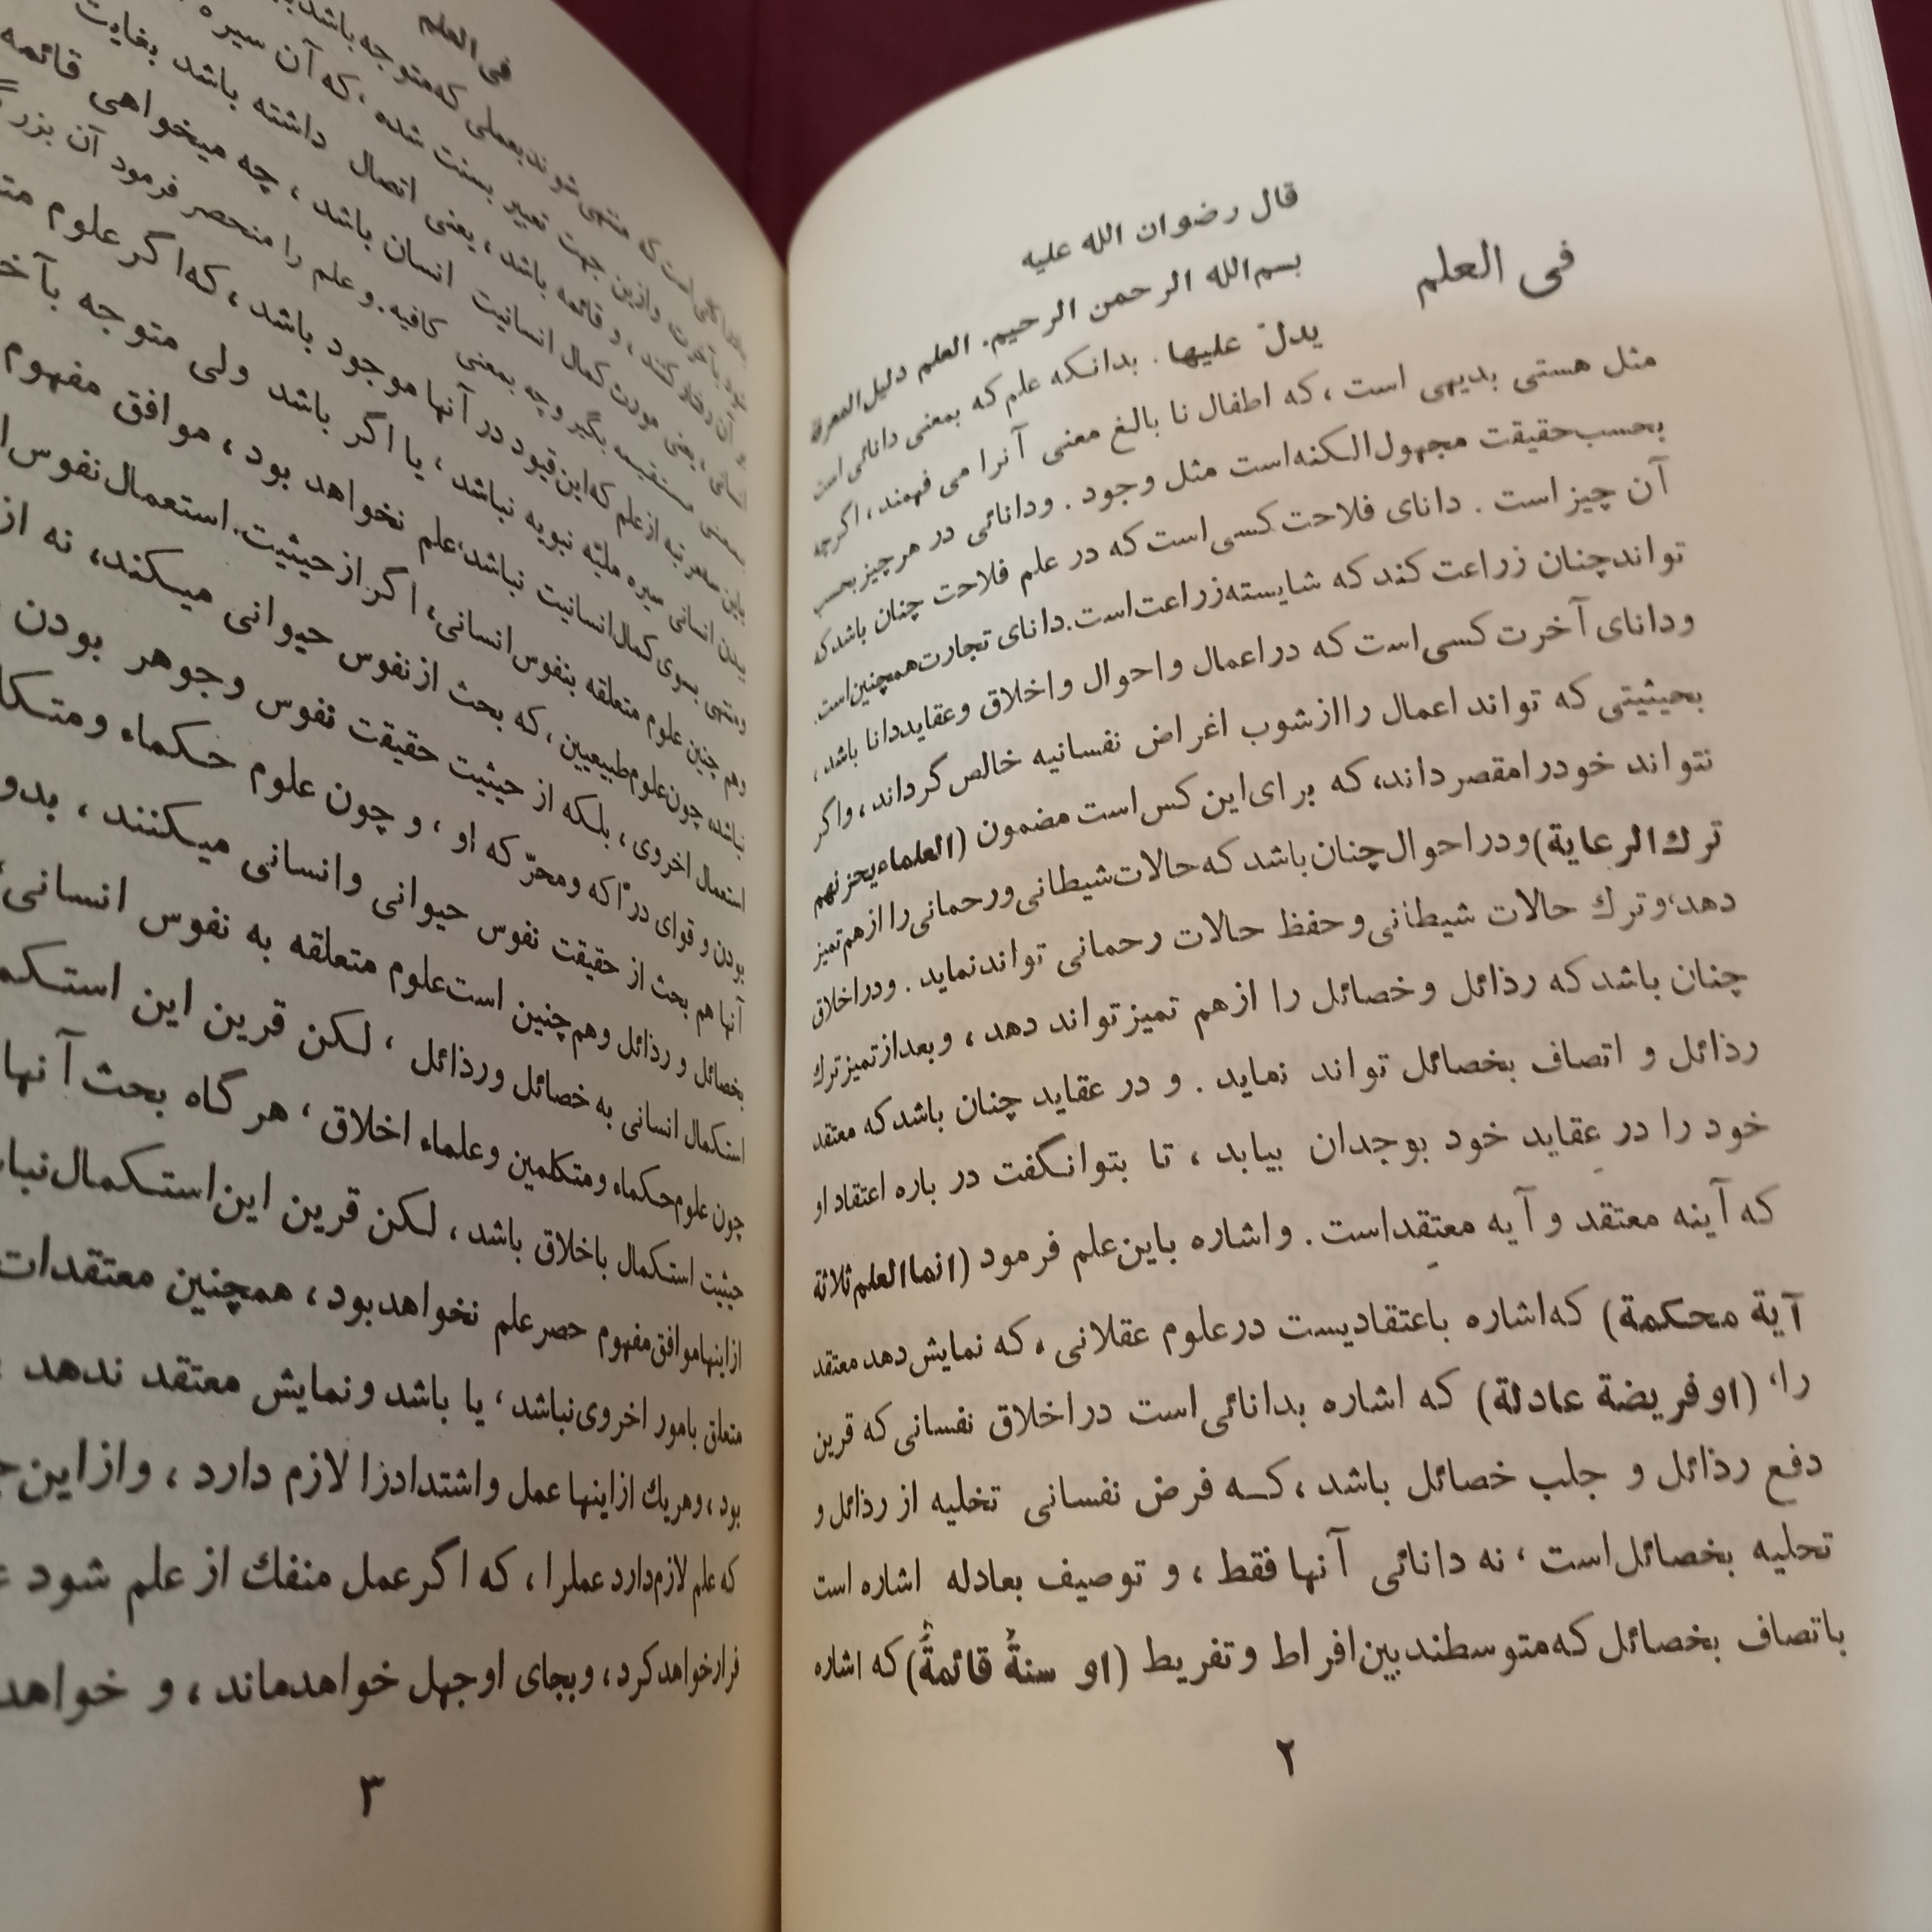 فی العلم
قال رضوان الله علیه
بسم‌الله الرحمن الرحیم. العلم دلیل المعرفة
یدلّ علیها . بدانکه علم که بمعنی دانائی است
مثل هستی بدیهی است ، که اطفال نا بالغ معنی آنرا می فهمند ، اگرچه
بحسب حقیقت مجهول‌الکنه است مثل وجود . ودانائی در هرچیز بحسب
آن چیز است . دانای فلاحت کسی است که در علم فلاحت چنان باشد که
تواند چنان زراعت کند که شایسته زراعت است. دانای تجارت همچنین است.
ودانای آخرت کسی است که در اعمال و احوال و اخلاق و عقاید دانا باشد ،
بحیثیتی که تواند اعمال را از شوب اغراض نفسانیه خالص گرداند ، واگر
نتواند خودرا مقصر داند، که برای این کس است مضمون (العلماء یحزنهم
ترك الرعایة) ودر احوال چنان باشد که حالات شیطانی و رحمانی را از هم تمیز
دهد، وترك حالات شیطانی و حفظ حالات رحمانی تواند نماید . ودر اخلاق
چنان باشد که رذائل و خصائل را ازهم تمیز تواند دهد ، و بعد از تمیز ترك
رذائل و اتصاف بخصائل تواند نماید . و در عقاید چنان باشد که معتقد
خود را در عقاید خود بوجدان بیابد ، تا بتوانگفت در باره اعتقاد او
که آینه معتقد و آیه معتقد است . واشاره باین علم فرمود (انما العلم ثلاثة
آیة محکمة) که اشاره باعتقادیست در علوم عقلانی ، که نمایش دهد معتقد
را، (او فریضة عادلة) که اشاره بدانائی است در اخلاق نفسانی که قرین
دفع رذائل و جلب خصائل باشد ، کــه فرض نفسانی تخلیه از رذائل و
تحلیه بخصائل است ، نه دانائی آنها فقط ، و توصیف بعادله اشاره است
باتصاف بخصائل که متوسطند بین افراط و تفریط (او سنةٌ قائمةٌ) که اشاره
۲
فی العلم
منتهی شوند بعملی که متوجه باشد
وازین جهت تعبیر بسنت شده ، که آن سیره
و قائمه باشد ، یعنی اتصال داشته باشد بغایت
یعنی مورث کمال انسانیت انسان باشد ، چه میخواهی قائمه
بمعنی مستقیمه بگیر و چه بمعنی کافیه. و علم را منحصر فرمود آن بزر
که این قیود در آنها موجود باشد ، که اگر علوم
انسانی سیره ملیّه نبویه نباشد ، یا اگر باشد ولی متوجه بآخ
ومنتهی بسوی کمال انسانیت نباشد، علم نخواهد بود ، موافق مفهوم
وهم چنین علوم متعلقه بنفوس انسانی، اگر از حیثیت استعمال نفوس
نباشد، چون علوم طبیعیین ، که بحث از نفوس حیوانی میکند، نه از
استعمال اخروی ، بلکه از حیثیت حقیقت نفوس و جوهر بودن
بودن و قوای درّاکه و محرّکه او ، و چون علوم حکماء و متکل
آنها هم بحث از حقیقت نفوس حیوانی و انسانی میکنند ، بدو
بخصائل و رذائل و هم چنین است علوم متعلقه به نفوس انسانی،
استکمال انسانی به خصائل و رذائل ، لکن قرین این استکم
چون علوم حکماء و متکلمین و علماء اخلاق ، هر گاه بحث آنها
حیثیت استکمال باخلاق باشد ، لکن قرین این استکمال نبا
از اینها موافق مفهوم حصر علم نخواهد بود ، همچنین معتقدات
متعلق بامور اخروی نباشد ، یا باشد و نمایش معتقد ندهد
بود ، وهریك از اینها عمل و اشتداد را لازم دارد ، و از این
که علم لازم دارد عملرا ، که اگر عمل منفك از علم شود
فرار خواهد کرد ، و بجای او جهل خواهد ماند ، و خواهد
۳